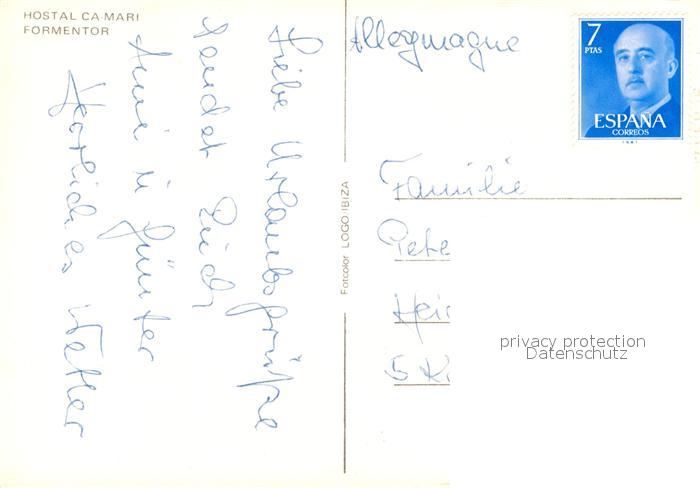 HOSTAL CA-MARI
FORMENTOR
Liebe Urlaubsgrüße
sendet Euch
Anni u Günter
Herrliches Wetter
Fotcolor LOGO/IBIZA
Allegmagne
7
PTAS
ESPAÑA
CORREOS
Familie
Pete
Hei
5 K
privacy protection
Datenschutz